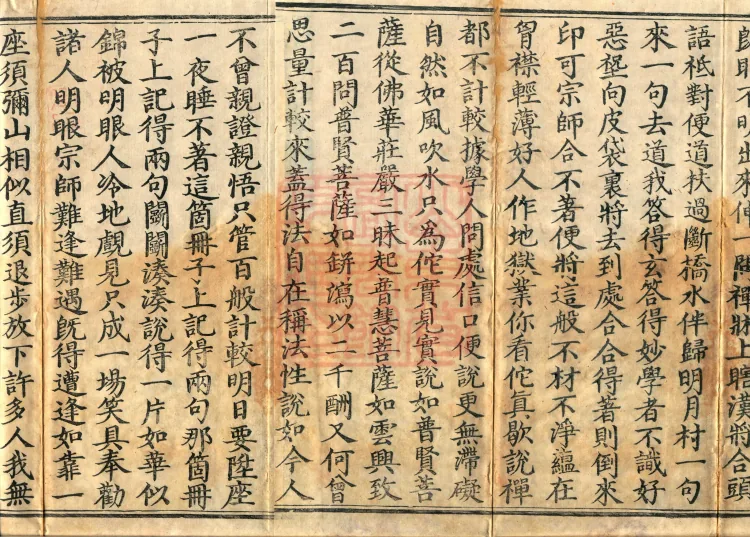 眼不明出來一禪上瞎漢將合頭
語祗對便道扶過斷橋水伴歸明月村一句
來一句去道我答得玄答得妙學者不識好
惡堊向皮袋裏將去到處合合得著則倒來
印可宗師合不著便將這般不材不淨蘊在
胷襟輕薄好人作地獄業你看佗眞歇說禪
都不計較據學人問處信口便說更無滯礙
自然如風吹水只為佗實見實說如普賢菩
薩從佛華莊嚴三昧起普慧菩薩如雲興致
二百問普賢菩薩如缾瀉以二千酬又何曾
思量計較來蓋得法自在稱法性說如今人
不曾親證親悟只管百般計較明日要陞座
一夜睡不著這箇冊子上記得兩句那箇冊
子上記得兩句鬭鬭湊湊說得一片如華似
錦被明眼人冷地覷見只成一場笑具奉勸
諸人明眼宗師難逢難遇旣得遭逢如靠一
座須彌山相似直須退步放下許多人我無